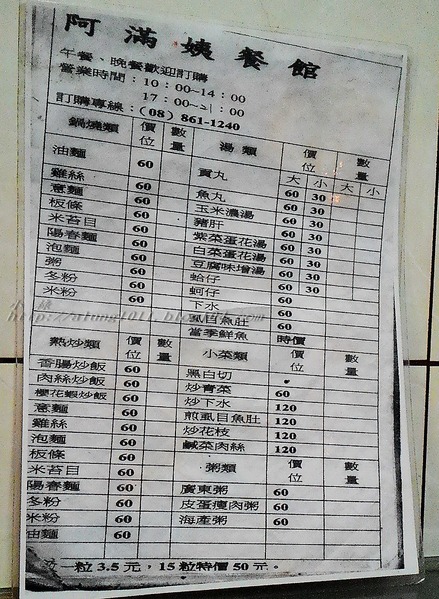 阿滿姨餐館
午餐、晚餐歡迎訂購
營業時間：10：00~14：00
17：00~21：00
訂購專線：(08) 861-1240
鍋燒類 價位 數量 湯類 價位 數量
大 小 大 小
油麵 60 貢丸
雞絲 60 魚丸 60 30
意麵 60 玉米濃湯 60 30
板條 60 豬肝 60 30
米苔目 60 紫菜蛋花湯 60 30
陽春麵 60 白菜蛋花湯 60 30
泡麵 60 豆腐味增湯 60 30
粥 60 蛤仔 60 30
冬粉 60 蚵仔 60
米粉 60 下水 60
虱目魚肚 60
當季鮮魚 時價
熱炒類 價位 數量 小菜類 價位 數量
香腸炒飯 60 黑白切
肉絲炒飯 60 炒青菜 60
櫻花蝦炒飯 60 炒下水 120
意麵 60 煎虱目魚肚 120
雞絲 60 炒花枝 120
泡麵 60 鹹菜肉絲 120
板條 60
米苔目 60 粥類 價位 數量
陽春麵 60 廣東粥 60
冬粉 60 皮蛋瘦肉粥 60
米粉 60 海產粥 60
油麵 60
一粒 3.5 元，15 粒特價 50 元。